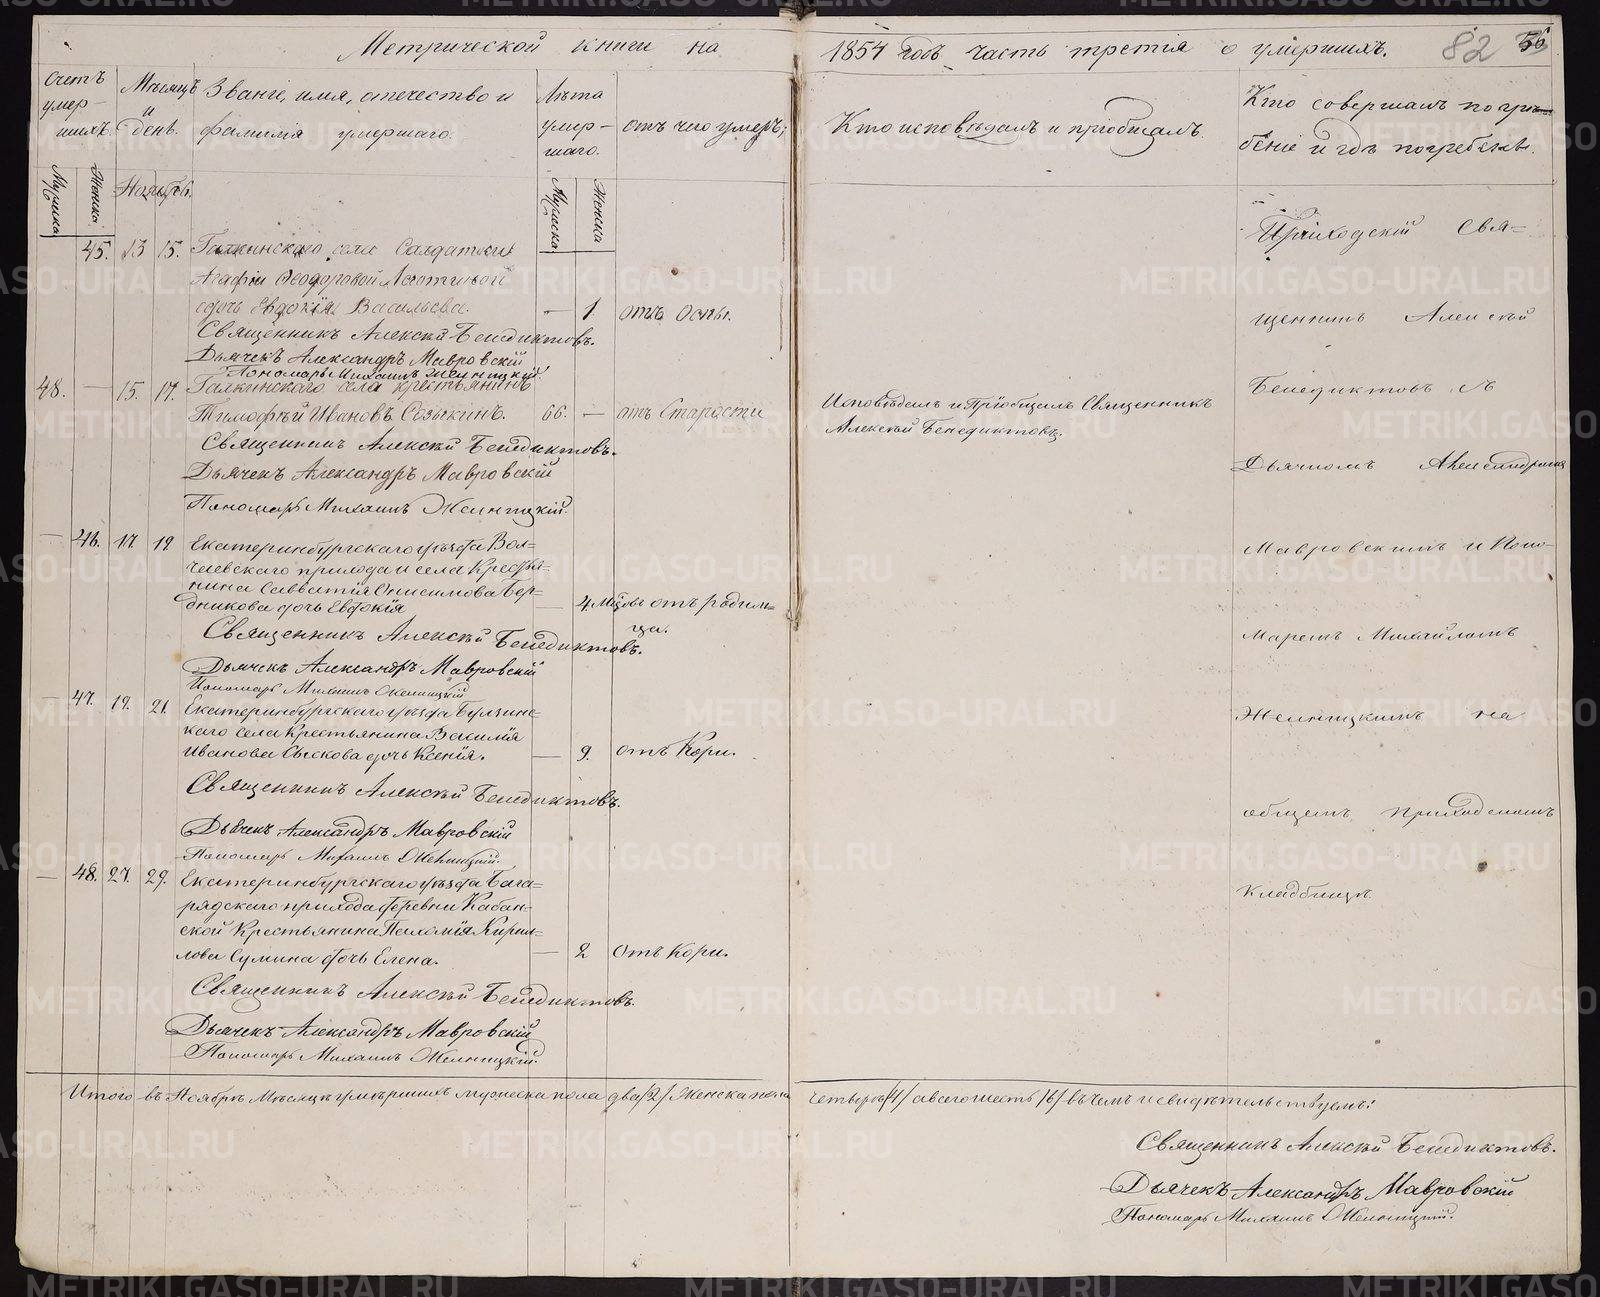 Метрической книги на 1854 годъ часть третія о умершихъ. 82
Счетъ умер-
шихъ.
Мѣсяцъ
и
день.
Званіе, имя, отечество и
фамилія умершаго.
Лѣта
умер-
шаго.
отъ чего умеръ;
Кто исповѣдалъ и пріобщалъ
Кто совершалъ погре-
беніе и гдѣ погребены.
Мужска
Женска
Ноябрь.
Мужска
Женска
45. 13 15. Галкинскаго села Солдатки
Агафіи Ѳеодоровой
дочь Евдокія Васильева. — 1 отъ Оспы.
Священникъ Алексѣй Бенедиктовъ.
Дьячекъ Александръ Мавровскій
Пономарь Михаилъ Желницкій.
48. — 15. 17. Галкинскаго села крестьянинъ
Тимофѣй Ивановъ Созыкинъ. 66. — отъ Старости
Исповѣдалъ и Пріобщалъ Священникъ
Алексѣй Бенедиктовъ.
Священникъ Алексѣй Бенедиктовъ.
Дьячекъ Александръ Мавровскій
Пономарь Михаилъ Желницкій.
— 46. 17. 19 Екатеринбургскаго уѣзда
прихода и села Крестья-
нина Савватія Онисимова Бер-
дникова дочь Евдокія — 4 Мѣсяцъ отъ родим-
ца.
Священникъ Алексѣй Бенедиктовъ.
Дьячекъ Александръ Мавровскій
Пономарь Михаилъ Желницкій
— 47. 19. 21. Екатеринбургскаго уѣзда Булзинс-
каго села Крестьянина Василія
Иванова Сыскова дочь Ксенія. — 9. отъ Кори.
Священникъ Алексѣй Бенедиктовъ.
Дьячекъ Александръ Мавровскій
Пономарь Михаилъ Желницкій.
— 48. 27. 29. Екатеринбургскаго уѣзда Бага-
рядскаго прихода деревни Кабан-
ской Крестьянина Пахомія Кирил-
лова Сумина дочь Елена. — 2 отъ Кори.
Священникъ Алексѣй Бенедиктовъ.
Дьячекъ Александръ Мавровскій
Пономарь Михаилъ Желницкій.
Приходскій Свя-
щенникъ Алексѣй
Бенедиктовъ съ
Дьячкомъ Александромъ
Мавровскимъ и Поно-
маремъ Михайломъ
Желницкимъ на
общемъ приходскомъ
кладбищѣ.
Итого въ Ноябрѣ Мѣсяцѣ умершихъ мужеска пола два /2/ Женска пола четыре /4/ а всего шесть /6/ въ чемъ и свидѣтельствуемъ:
Священникъ Алексѣй Бенедиктовъ.
Дьячекъ Александръ Мавровскій
Пономарь Михаилъ Желницкій.
METRIKI.GASO-URAL.RU